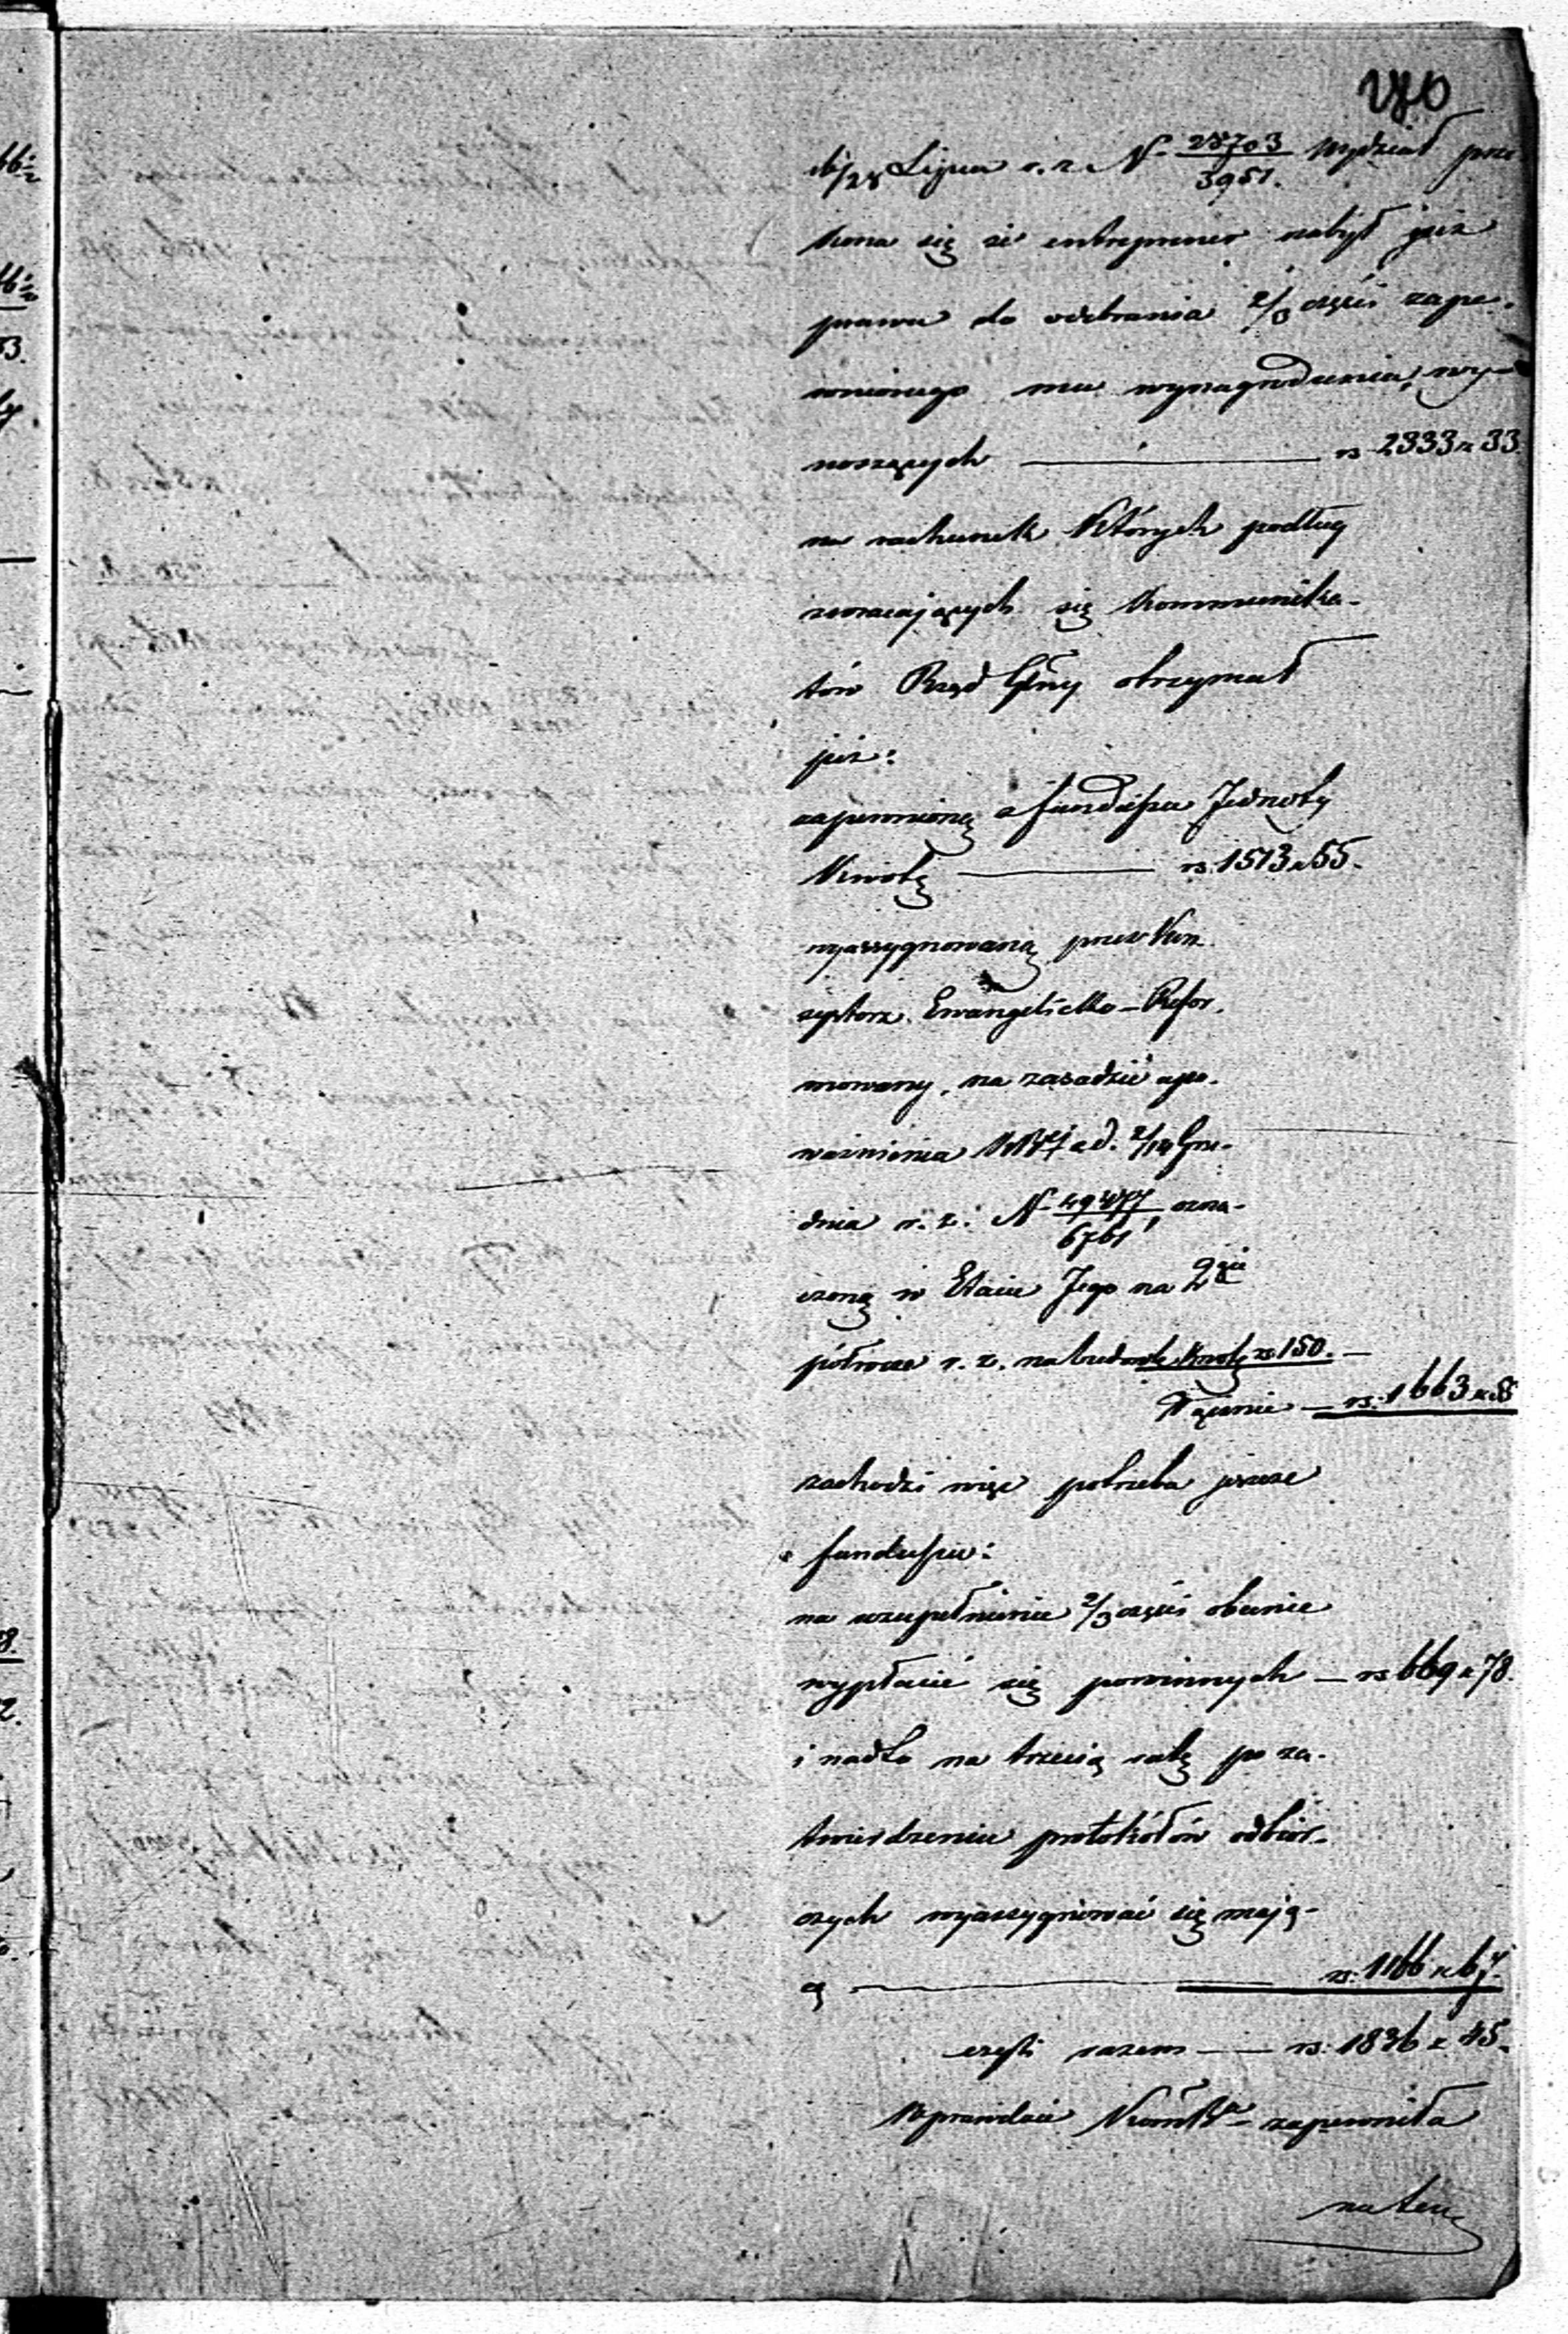 280
16/28 Lipca r. z. N. 28703/3951. Wydział prze-
kona się że entreprener nabył już
prawa do odebrania 2/3 części zape-
wnionego mu wynagrodzenia, wy-
noszących — rs 2333 k 33.
na rachunek których podług
zwracających się kommunika-
tów Rząd Głny otrzymał
już:
zapewnioną z funduszu Jednoty
kwotę — rs. 1513 k 55.
wyassygnowaną przez Kon
systorz Ewangelicko-Refor-
mowany, na zasadzie upo-
ważnienia z d. 2/14 Gru-
dnia r. z. N. ozna-
czoną w Etacie Jego na 2gie
półrocze r. z. na budowlę kwotę rs 150. —
Łącznie — rs. 1663 k 55
zachodzi więc potrzeba jeszcze
funduszu:
na uzupełnienie 2/3 części obecnie
wypłacić się powinnych — rs 669 k 78.
i nadto na trzecią ratę po za-
twierdzeniu protokółów odbior-
czych wyassygnować się mają-
cą — rs. 1166 k 67.
czyli razem — rs. 1836 k 45.
Wprawdzie zapewniła
na ten